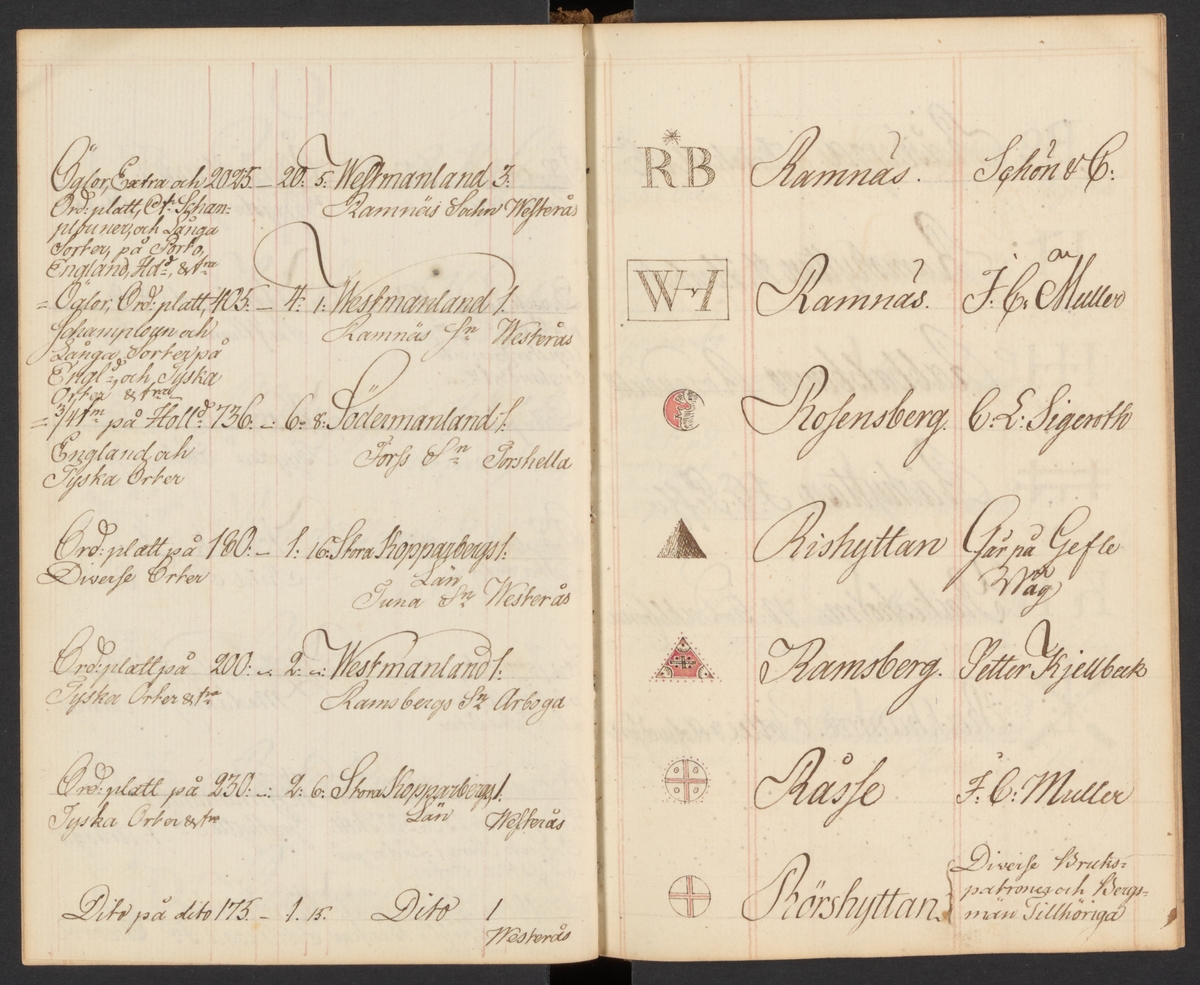 Öglor, Extra och 2025. – 20: 5: Westmanland 3:
Ord: platt, Ct: Scham=
plouner, och Långa
Sorter, på Porto,
England, Hd:, &tra
Ramnäs Sochn Westerås
= Öglor, Ord: platt, 405. – 4: 1: Westmanland 1:
Schamploun och
Långa Sorter på
Engld:, och Tyska
Orter &tra
Ramnäs Sn Westerås
= 3/4tm på Holld 736: – 6: 8: Södermanland 1:
England och
Tyska Orter
Torss Sn Torshella
Ord: platt på 180: – 1: 16: Stora Kopparbergs 1:
Diverse Orter
Län
Tuna Sn Westerås
Ord: platt på 200: – 2: –: Westmanland 1:
Tyska Orter &tra
Ramsbergs Sn Arboga
Ord: platt på 230: –: 2: 6: Stora Kopparbergs 1:
Tyska Orter &tra
Län Westerås
Dito på dito 175 – 1. 15: Dito 1
Westerås
RB Ramnäs. Schön & C:
W I Ramnäs. J: C: Muller
Rosensberg. C: L: Sigeroth
Rishyttan Går på Gefle
Våg
Ramsberg. Petter Kjellbeck
Råsse J: C: Muller
Rörshyttan. Diverse Bruks=
patroner och Bergs=
män Tillhöriga